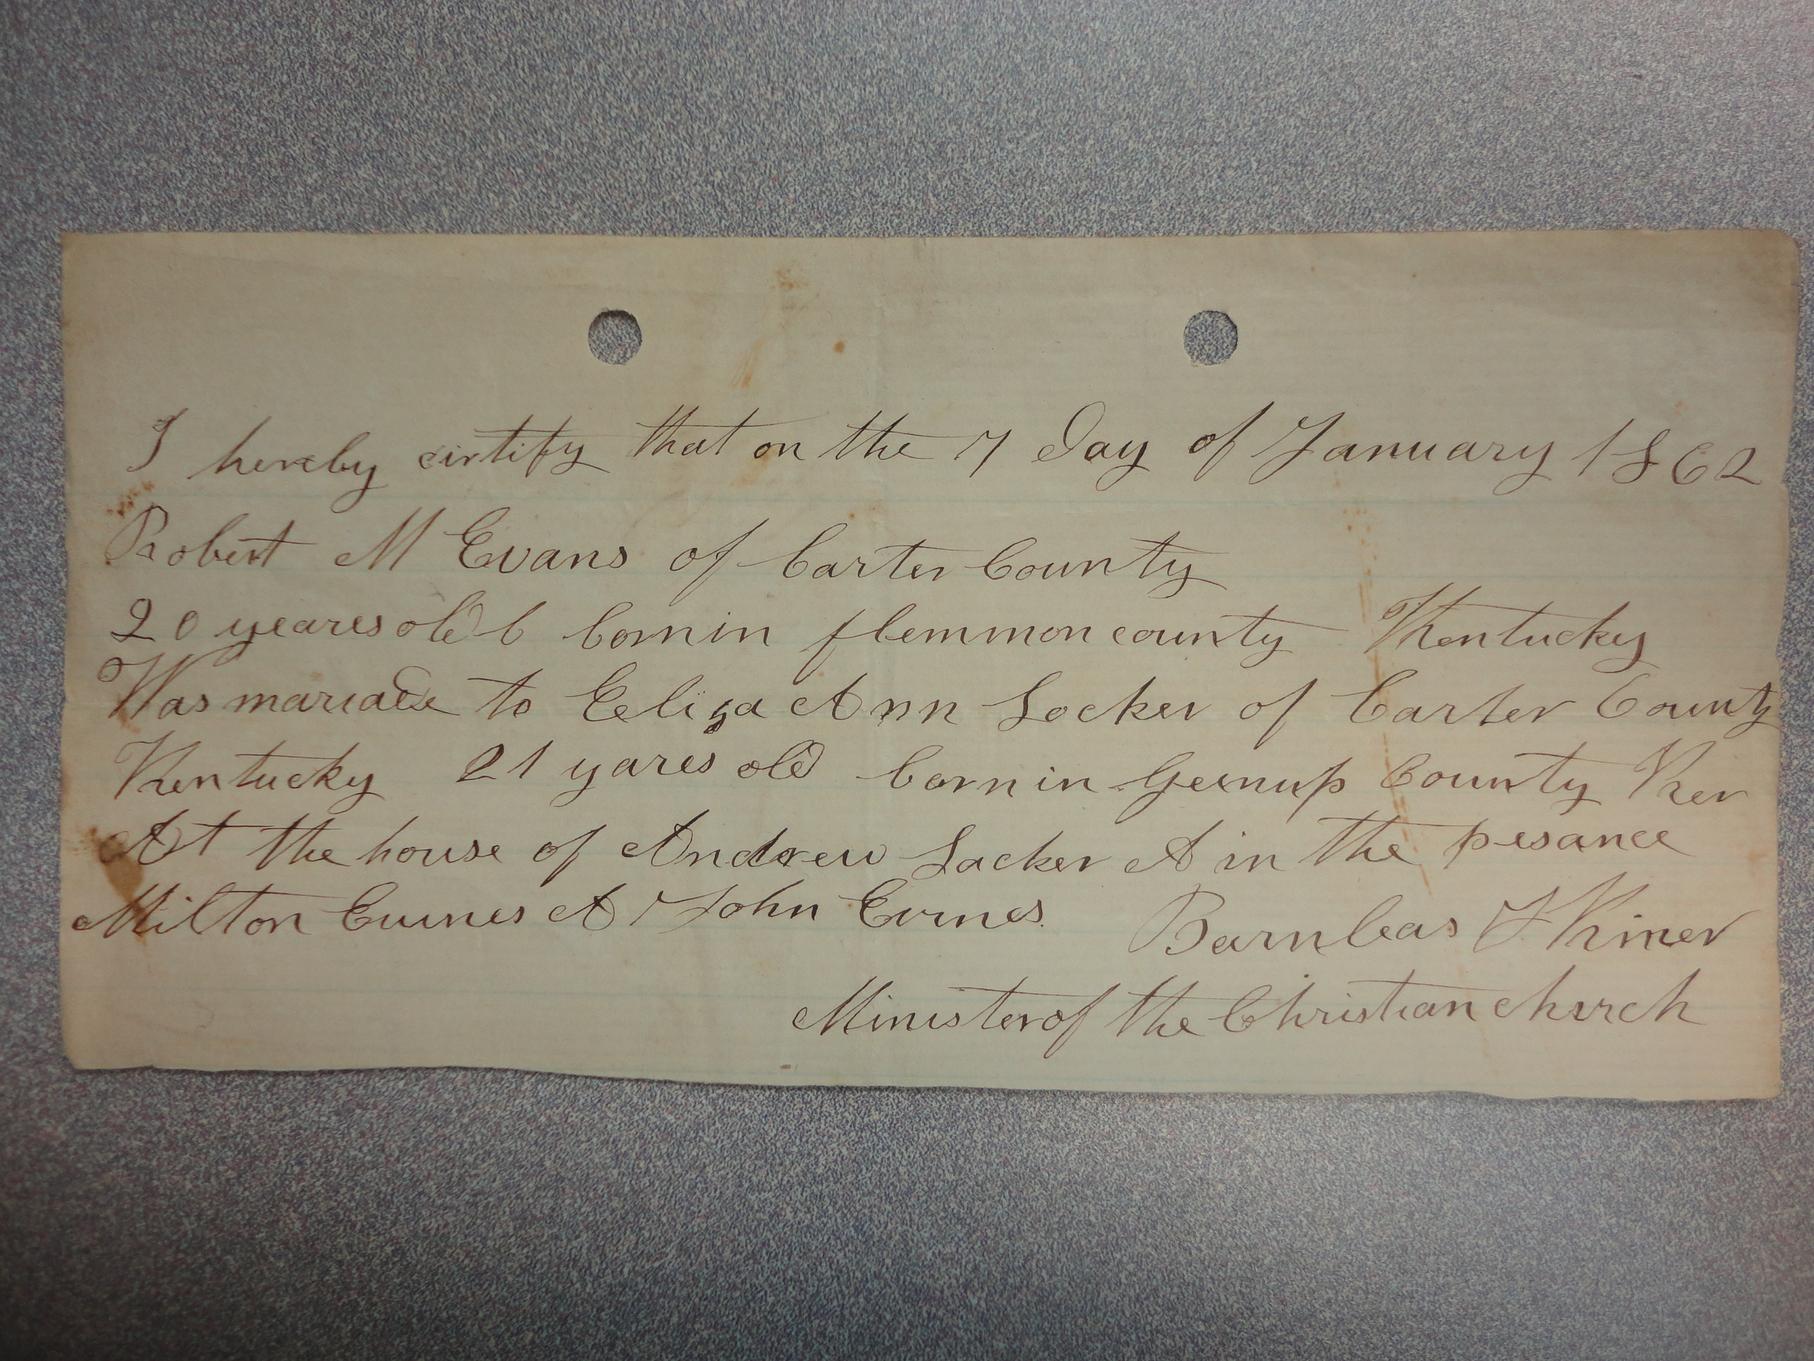 I hereby cirtify that on the 7 Day of January 1862
Robert M Evans of Carter County
20 yeares old b born in flemmon county Kentucky
Was mariade to Eeliza Ann Locker of Carter County
Kentucky 21 yares old born in Geenup County Ken
At the house of Andrew Lacker A in the presance
Milton Evines A John Evines
Barnbeas F Kiner
Minister of the Christian church